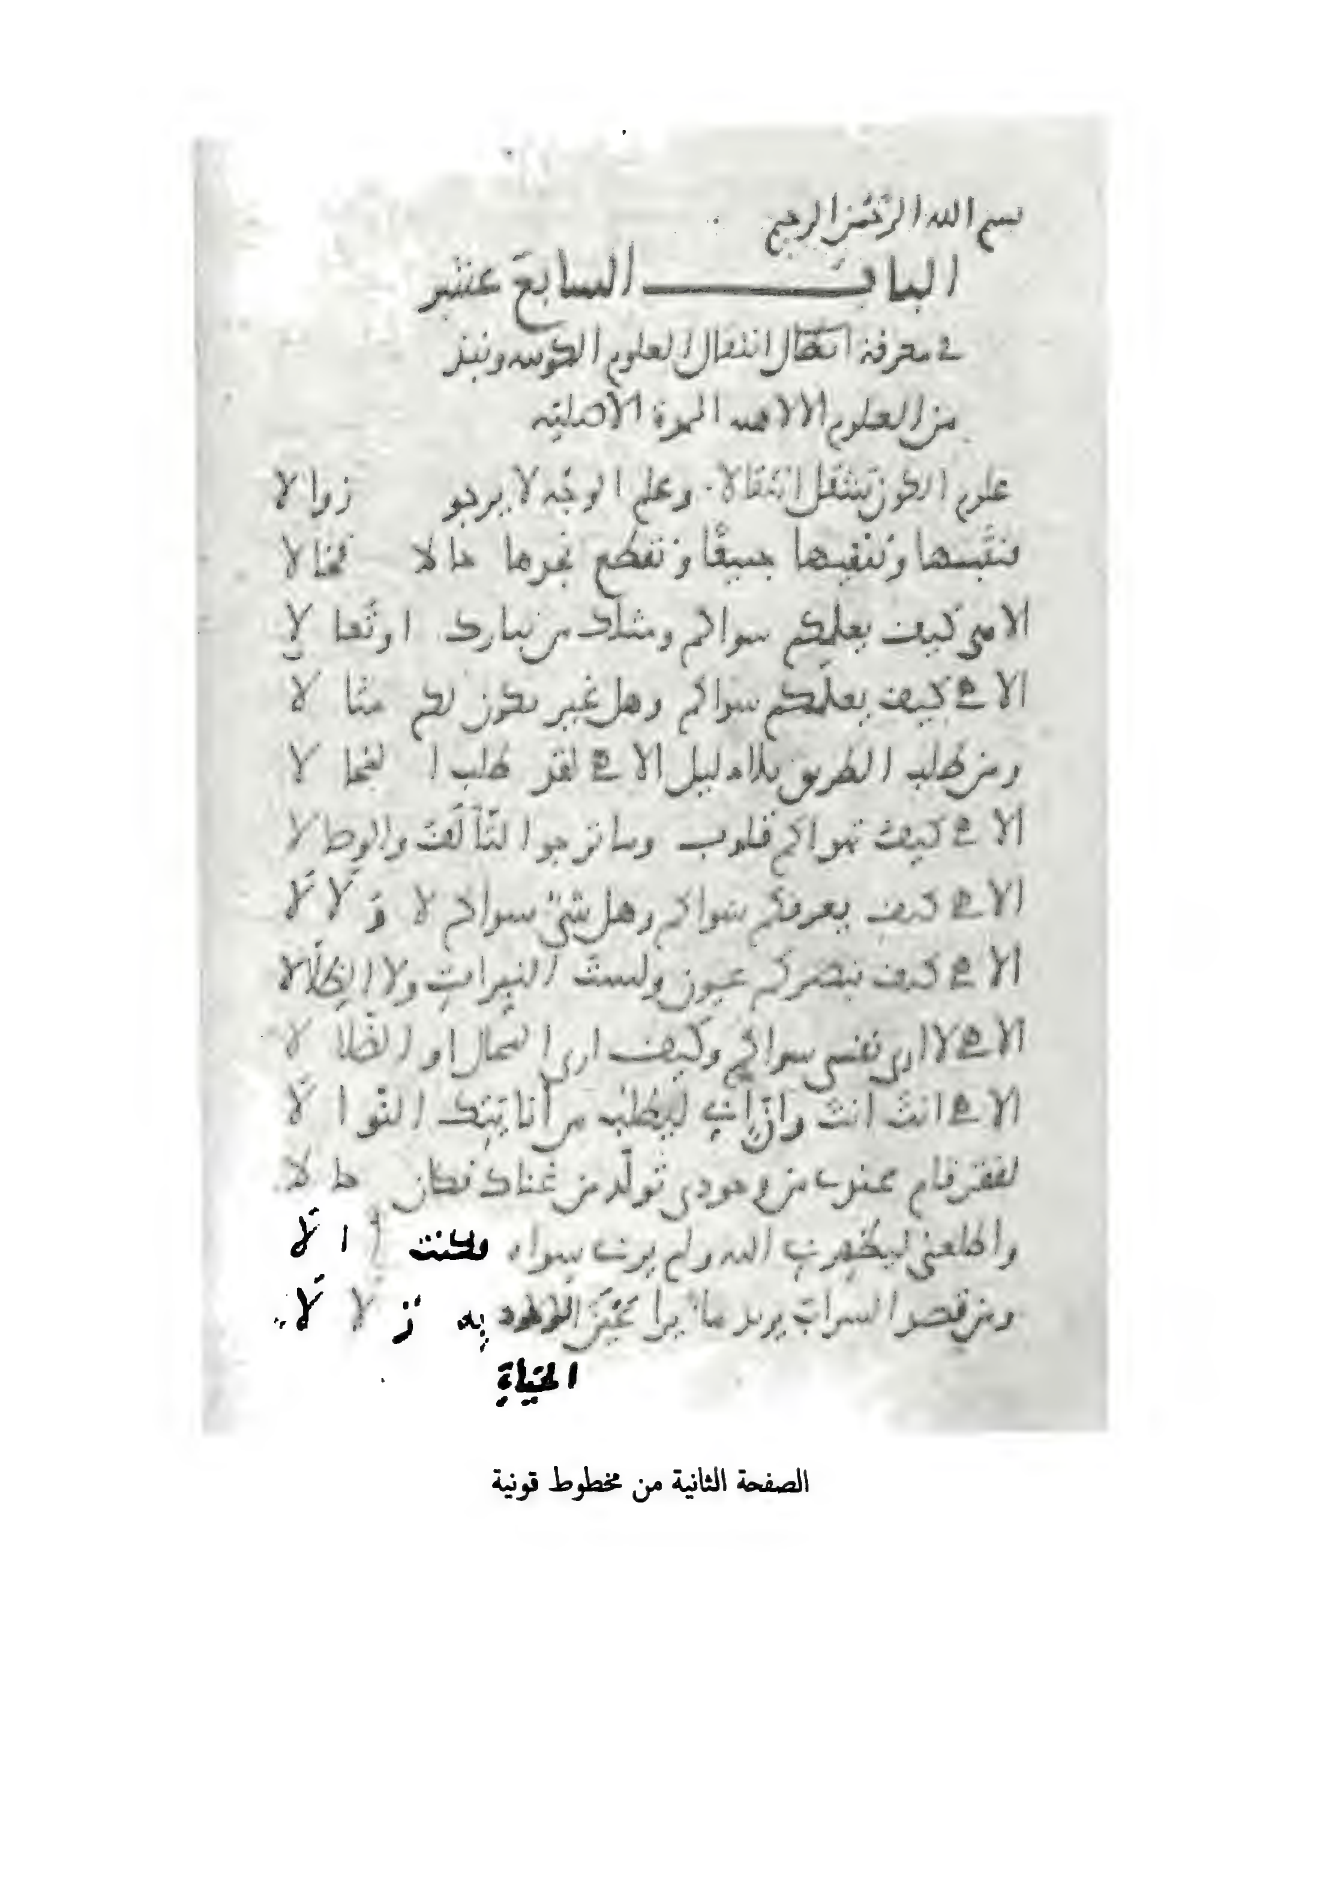 بسم الله الرحمن الرحيم
الباب السابع عشر
في معرفة انتقال العلوم الكونيه ونبذ
من العلوم الالاهيه الممدة الاصليه
علوم الكون تنتقل انتقالا وعلم الوجه لا يرجو زوالا
فنثبتها وننفيها جميعا ونقطع نجدها حالا فحالا
الاهي كيف يعلمكم سواكم ومثلك من تبارك او تعالا
الاهي كيف يعلمكم سواكم وهل غير يكون لكم مثالا
ومن طلب الطريق بلا دليل الاهي لقد طلب المحالا
الاهي كيف تهواكم قلوب وما ترجوا التألف والوصالا
الاهي كيف يعرفكم سواكم وهل شيء سواكم لا ولالا
الاهي كيف تبصركم عيون ولست النيرات ولا الظلالا
الاهي لا ارى نفسي سواكم وكيف ارى المحال او الضلالا
الاهي انت انت وان اني ليطلب من أناتيك النوالا
لفقر قام عندي من وجودي تولد من غناك فكان حالا
واطلعني ليظهرني اليه ولم يرني سواه فكنت ألا
ومن قصد السراب يريد ماء يرا عين الحياة به زلالا
الحياة
الصفحة الثانية من مخطوط قونية